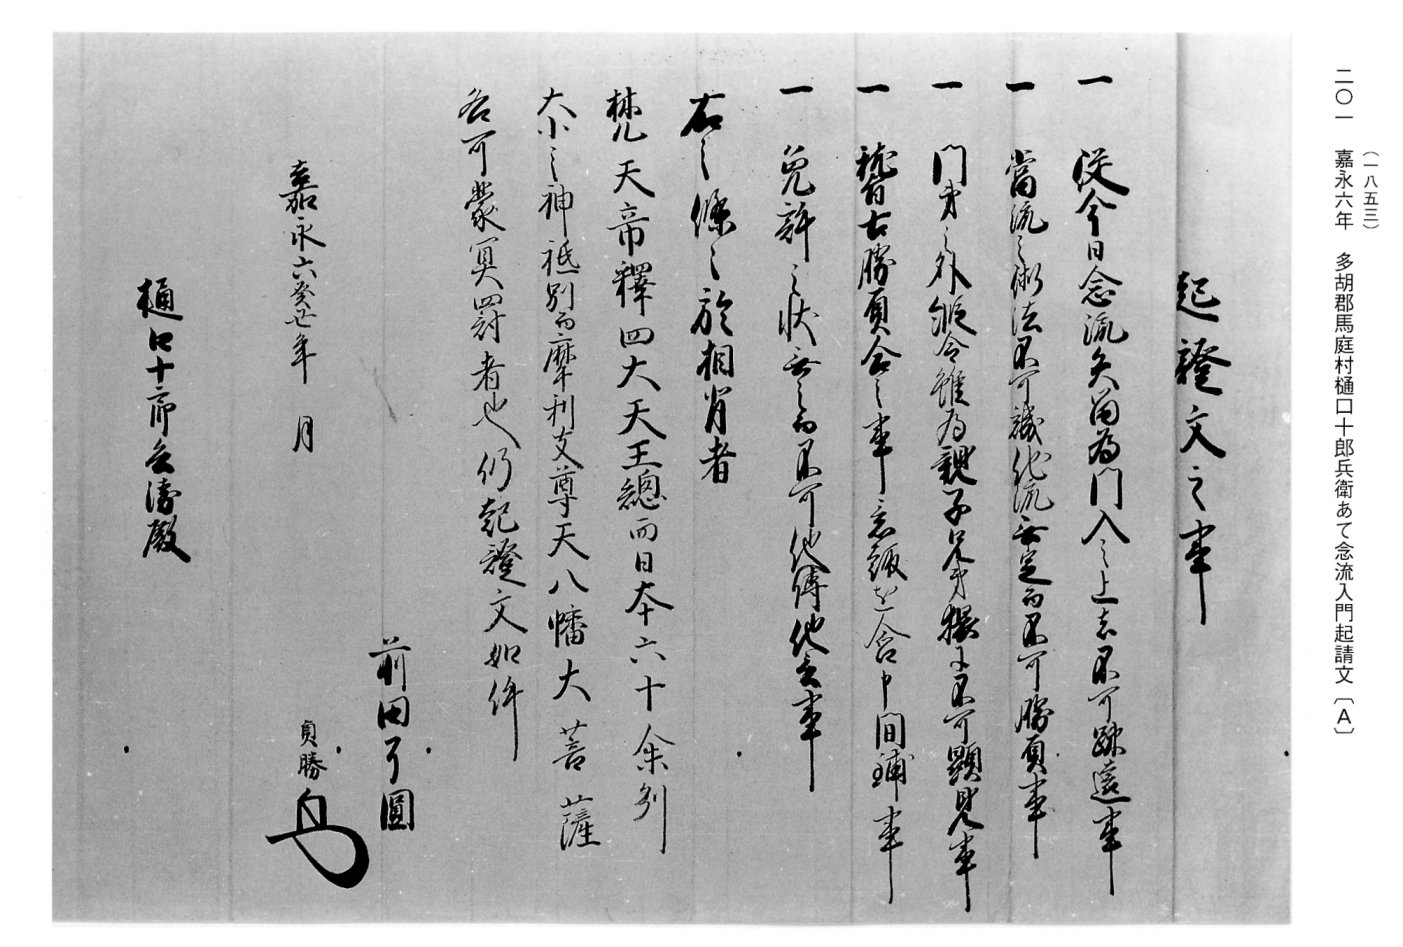 (一八五三)
二〇一 嘉永六年 多胡郡馬庭村樋口十郎兵衛あて念流入門起請文〔A〕
起證文之事
一 従今日念流矢留為門入之上者不可踈遠事
一 當流之術法不可譏他流無定而不可勝負事
一 門弟之外縦令雖為親子兄弟猥不可顕見事
一 稽古勝負合之事 意趣を含中間事
一 免許之状無之而不可他傳他言事
右之條之於相背者
梵天帝釋四大天王總而日本六十余列
大小之神祇別而摩利支尊天八幡大菩薩
各可蒙冥罰者也仍起證文如件
前田了圓
貞勝
嘉永六癸丑年 月
樋口十郎兵衛殿